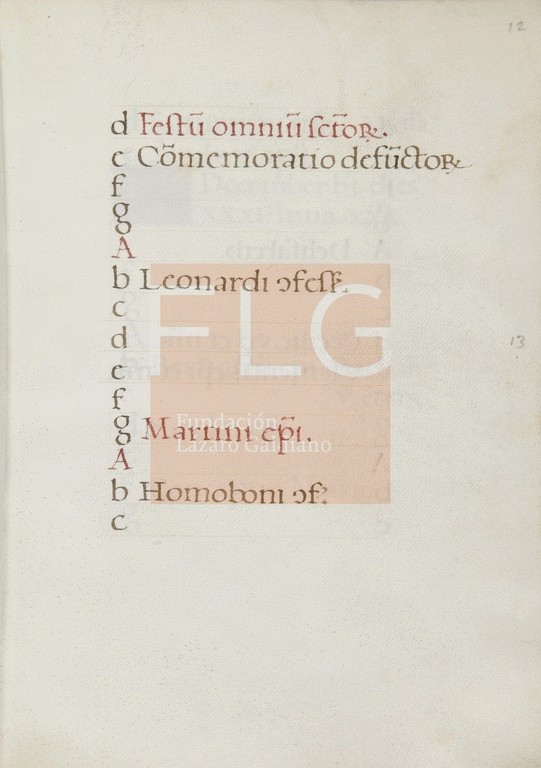 12
d Festū omniū sc̄toꝝ.
e Cōmemoratio defūctoꝝ
f
g
A
b Leonardi ɔfess.
c
d
13
e
f
g Martini ep̄i.
A
b Homoboni ɔf.
c
FLG
Fundación
Lázaro Galdiano